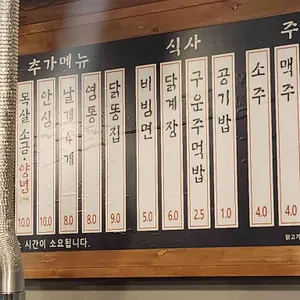 추가메뉴
목살소금·양념
10.0
안심
10.0
날개4개
8.0
염통
8.0
닭똥집
9.0
식사
비빔면
5.0
닭계장
6.0
구운주먹밥
2.5
공기밥
1.0
주
소주
4.0
맥주
4.0
시간이 소요됩니다.
닭고기